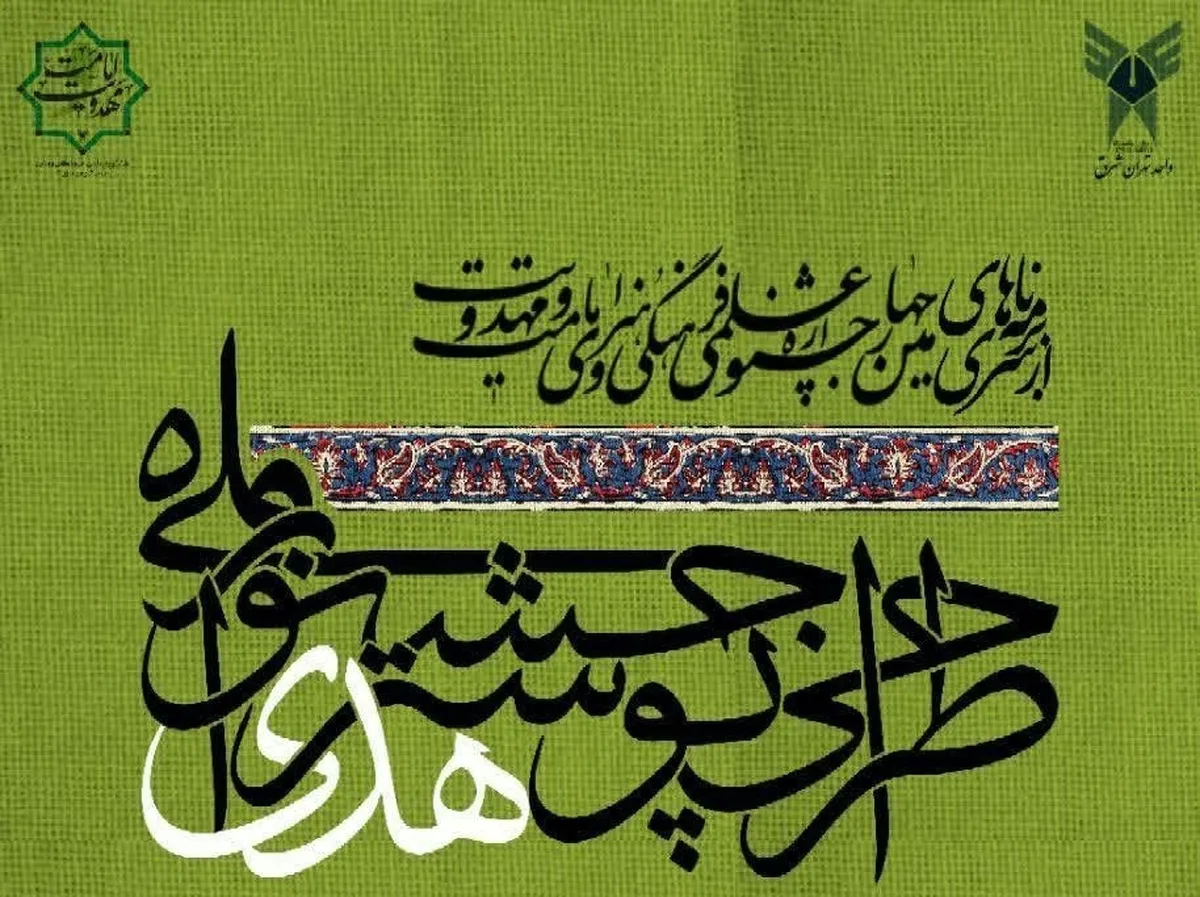 امامت
مهدویت
واحد تهران شرق
از سری برنامه های چهارمین جشنواره علمی فرهنگی هنری امامت و مهدویت
طراحی پوستر جشنواره ملی
هدی